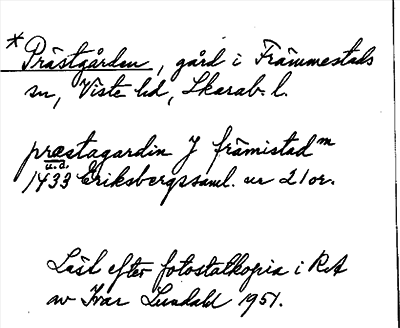 * Prästgården, gård i Främmestads
sn, Viste hd, Skarab. l.
præstagardin J främistad m
u.a.
1433 Eriksbergssaml. nr 21 or.
Läst efter fotostatkopia i RA
av Ivar Lundahl 1951.